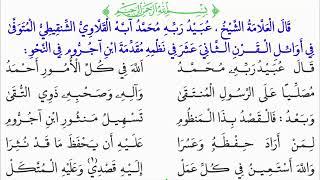 بِسْمِ اللَّهِ الرَّحْمَنِ الرَّحِيمِ
قَالَ الْعَلَّامَةُ الشَّيْخُ ، عُبَيْدُ رَبِّهِ مُحَمَّدُ ابَّهُ الْقَلَّاوِيُّ الشَّنْقِيطِيُّ الْمُتَوَفَّى
فِي أَوَائِلِ الْقَرْنِ الثَّانِي عَشَرَ فِي نَظْمِهِ مُقَدِّمَةَ ابْنِ آجُرُّومٍ فِي النَّحْوِ :
قَالَ عُبَيْدُ رَبِّهِ مُحَمَّدُ اللَّهَ فِي كُلِّ الْأُمُورِ أَحْمَدُ
مُصَلِّيًا عَلَى الرَّسُولِ الْمُنْتَقَى وَآلِهِ وَصَحْبِهِ ذَوِي التُّقَى
وَبَعْدُ : فَالْقَصْدُ بِذَا الْمَنْظُومِ تَسْهِيلُ مَنْثُورِ ابْنِ آجُرُّومِ
لِمَنْ أَرَادَ حِفْظَهُ وَعَسُرَا عَلَيْهِ أَنْ يَحْفَظَ مَا قَدْ نُثِرَا
وَاللَّهَ أَسْتَعِينُ فِي كُلِّ عَمَلْ إِلَيْهِ قَصْدِي وَعَلَيْهِ الْمُتَّكَلْ